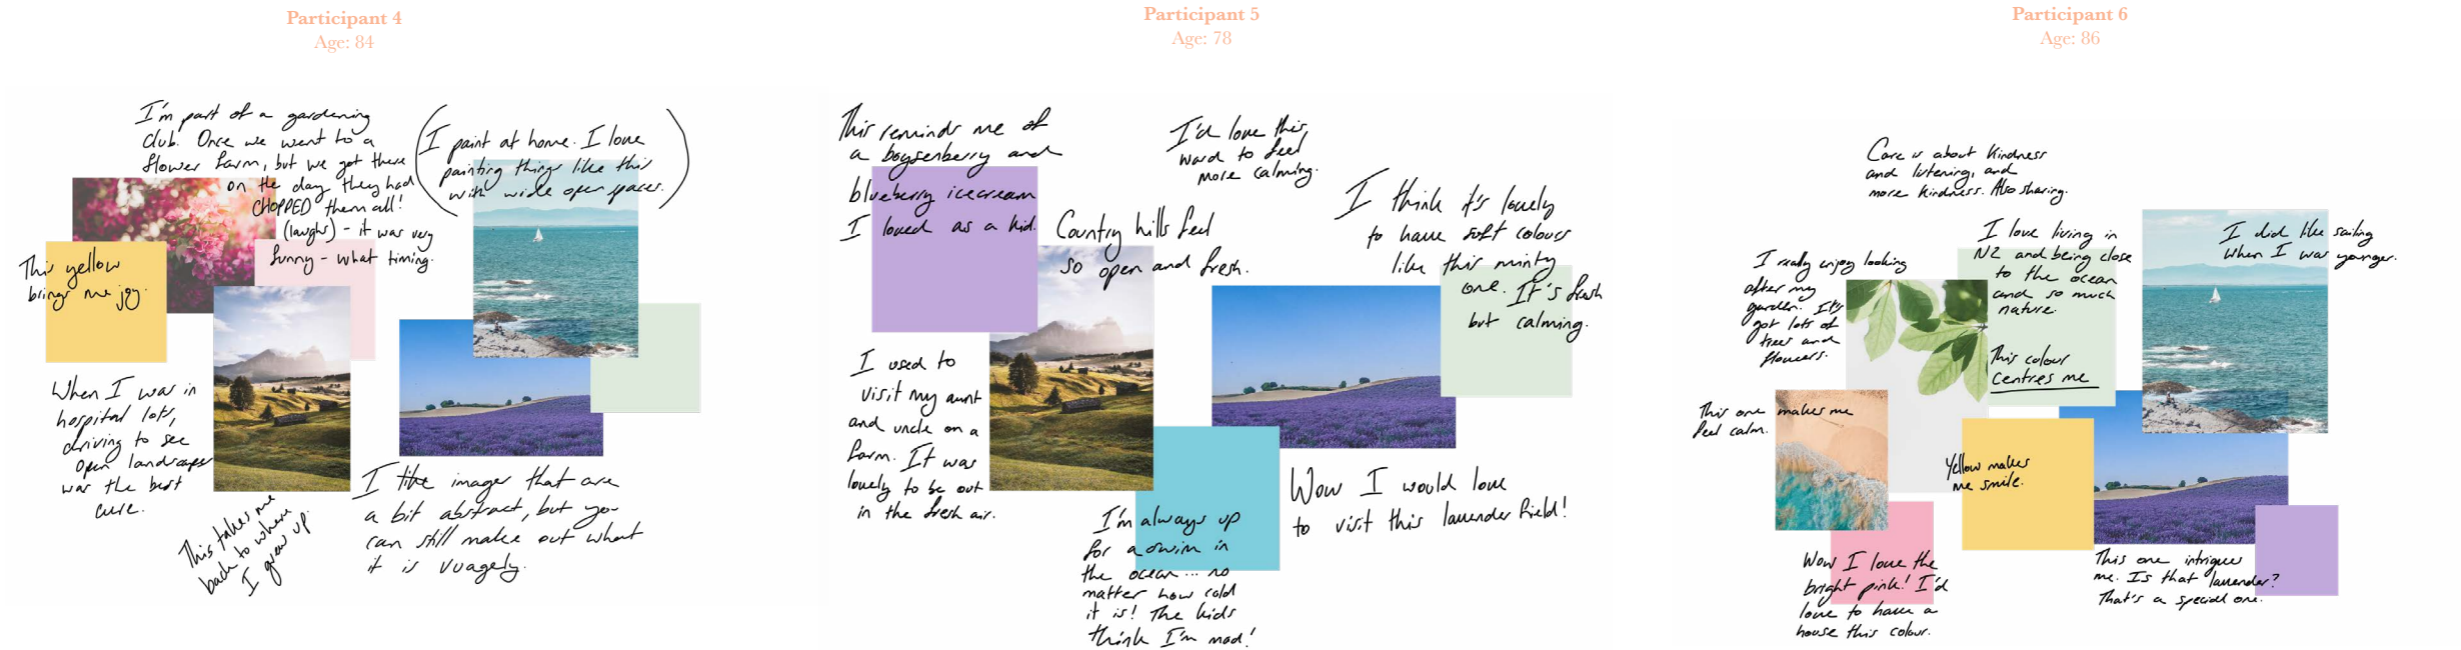 Participant 4
Age: 84
I'm part of a gardening
club. Once we went to a
flower farm, but we got there
on the day they had
CHOPPED them all!
(laughs) - it was very
funny - what timing.
(I paint at home. I love
painting things like this
with wide open spaces.)
This yellow
brings me joy.
When I was in
hospital lots,
driving to see
open landscapes
was the best
cure.
This takes me
back to where
I grew up.
I like images that are
a bit abstract, but you
can still make out what
it is vuagely.
Participant 5
Age: 78
This reminds me of
a boysenberry and
blueberry icecream
I loved as a kid.
I'd love this
ward to feel
more calming.
Country hills feel
so open and fresh.
I think it's lovely
to have soft colours
like this minty
one. It's fresh
but calming.
I used to
visit my aunt
and uncle on a
farm. It was
lovely to be out
in the fresh air.
I'm always up
for a swim in
the ocean... no
matter how cold
it is! The kids
think I'm mad!
Wow I would love
to visit this lavender field!
Participant 6
Age: 86
Care is about kindness
and listening, and
more kindness. Also sharing.
I really enjoy looking
after my
garden. It's
got lots of
trees and
flowers.
I love living in
NZ and being close
to the ocean
and so much
nature.
This colour
centres me
I did like sailing
when I was younger.
This one makes me
feel calm.
Yellow makes
me smile.
Wow I love the
bright pink! I'd
love to have a
house this colour.
This one intrigues
me. Is that lavender?
That's a special one.